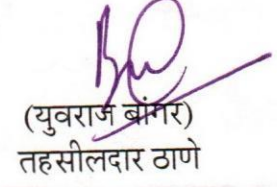 (युवराज बांगर)
तहसीलदार ठाणे